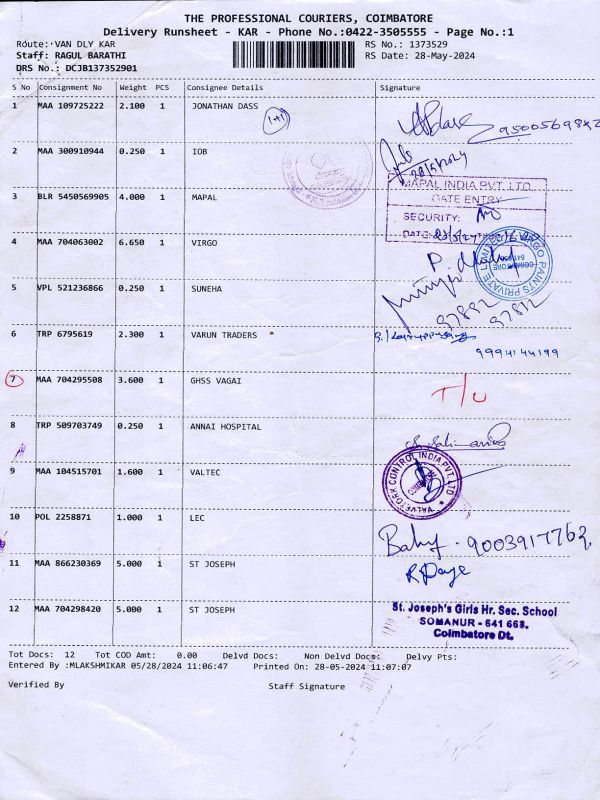 THE PROFESSIONAL COURIERS, COIMBATORE
Delivery Runsheet - KAR - Phone No.:0422-3505555 - Page No.:1
Route: VAN DLY KAR RS No.: 1373529
Staff: RAGUL BARATHI RS Date: 28-May-2024
DRS No.: DCJB137352901
S No Consignment No Weight PCS Consignee Details Signature
1 MAA 109725222 2.100 1 JONATHAN DASS
1+1
2 MAA 300910944 0.250 1 IOB
28/5/2024
3 BLR 5450569905 4.000 1 MAPAL
MAPAL INDIA PVT. LTD.
GATE ENTRY
SECURITY:
DATE:
4 MAA 704063002 6.650 1 VIRGO
VIRGO PAINTS PRIVATE LIMITED
COIMBATORE
5 VPL 521236866 0.250 1 SUNEHA
97892
97812
6 TRP 6795619 2.300 1 VARUN TRADERS
9994144199
7 MAA 704295508 3.600 1 GHSS VAGAI
T/U
8 TRP 509703749 0.250 1 ANNAI HOSPITAL
9 MAA 104515701 1.600 1 VALTEC
VALVE TORK CONTROL INDIA PVT. LTD
10 POL 2258871 1.000 1 LEC
9003917762
11 MAA 866230369 5.000 1 ST JOSEPH
12 MAA 704298420 5.000 1 ST JOSEPH
St. Joseph's Girls Hr. Sec. School
SOMANUR - 641 668.
Coimbatore Dt.
Tot Docs: 12 Tot COD Amt: 0.00 Delvd Docs: Non Delvd Docs: Delvy Pts:
Entered By :MLAKSHMIKAR 05/28/2024 11:06:47 Printed On: 28-05-2024 11:07:07
Verified By Staff Signature